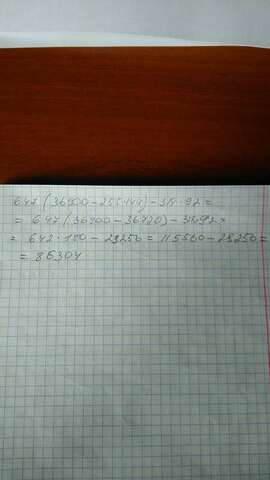 642(36900-255·144)-318·92=
=642(36900-36720)-318·92=
=642·180-29256=115560-29256=
=86304